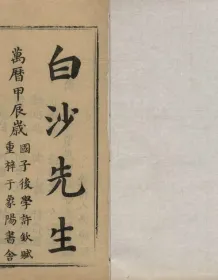 白沙先生
萬曆甲辰歲
國子後學許欽賦
重梓于象陽書舍